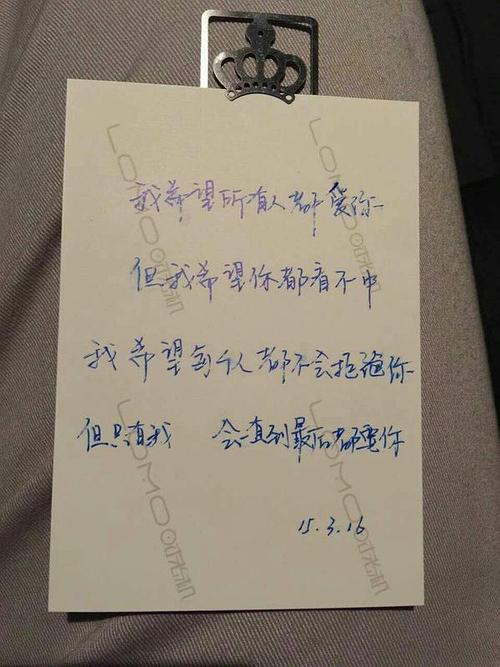 我希望所有人都爱你
但我希望你都看不中
我希望每个人都不会拒绝你
但只有我 会一直到最后都爱你
15.3.16
LOMO自拍机
LOMO自拍机
LOMO自拍机
LOMO自拍机